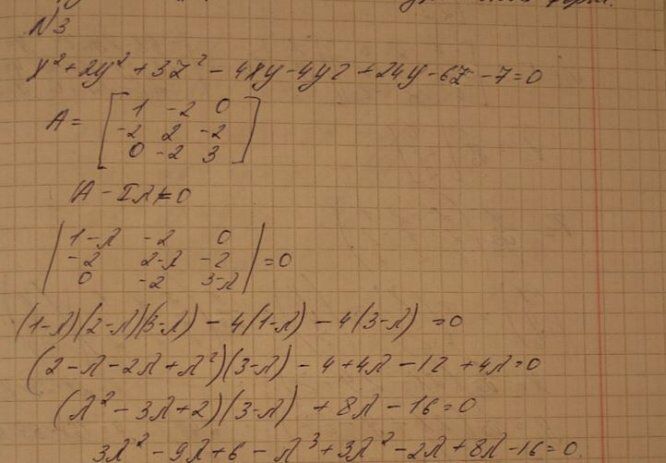 N3
x² + 2y² + 3z² - 4xy - 4yz + 24y - 6z - 7 = 0
A = [ 1 -2 0
-2 2 -2
0 -2 3 ]
|A - Iλ| = 0
| 1-λ -2 0
-2 2-λ -2 | = 0
0 -2 3-λ |
(1-λ)(2-λ)(3-λ) - 4(1-λ) - 4(3-λ) = 0
(2-λ-2λ+λ²)(3-λ) - 4 + 4λ - 12 + 4λ = 0
(λ² - 3λ + 2)(3-λ) + 8λ - 16 = 0
3λ² - 9λ + 6 - λ³ + 3λ² - 2λ + 8λ - 16 = 0.